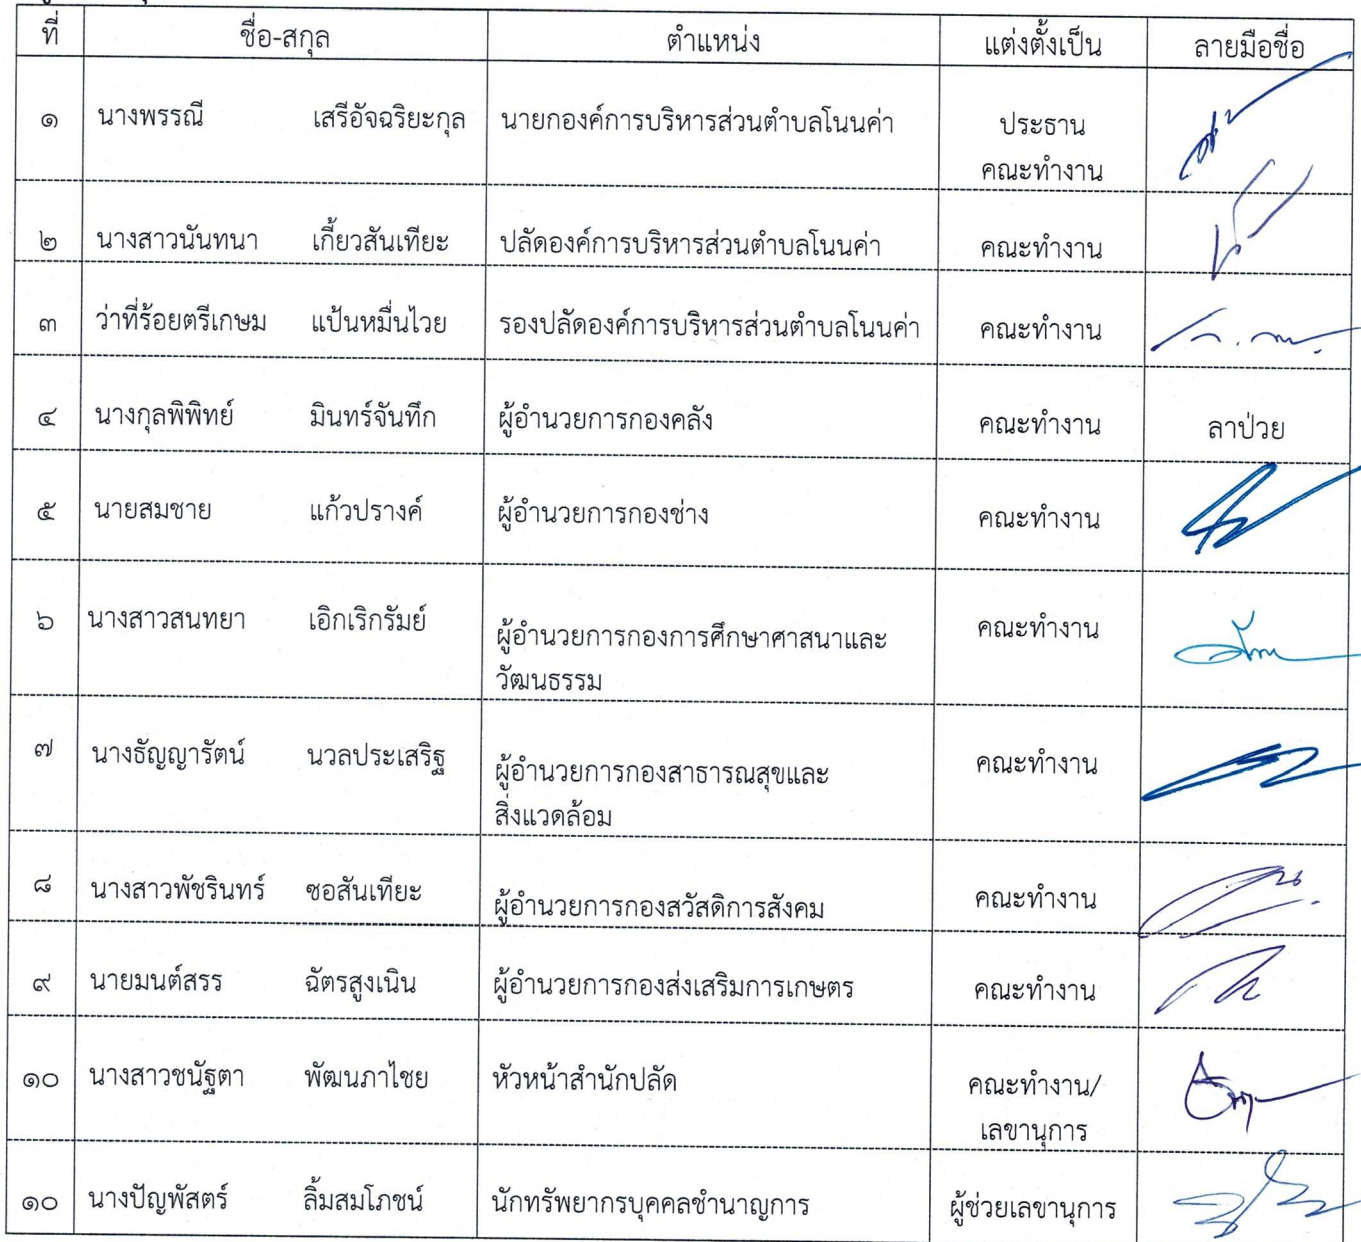 ที่ ชื่อ-สกุล ตำแหน่ง แต่งตั้งเป็น ลายมือชื่อ
๑ นางพรรณี เสรีอัจฉริยะกุล นายกองค์การบริหารส่วนตำบลโนนค่า ประธาน
คณะทำงาน
๒ นางสาวนันทนา เกี้ยวสันเทียะ ปลัดองค์การบริหารส่วนตำบลโนนค่า คณะทำงาน
๓ ว่าที่ร้อยตรีเกษม แป้นหมื่นไวย รองปลัดองค์การบริหารส่วนตำบลโนนค่า คณะทำงาน
๔ นางกุลพิพิทย์ มินทร์จันทึก ผู้อำนวยการกองคลัง คณะทำงาน ลาป่วย
๕ นายสมชาย แก้วปรางค์ ผู้อำนวยการกองช่าง คณะทำงาน
๖ นางสาวสนทยา เอิกเริกรัมย์ ผู้อำนวยการกองการศึกษาศาสนาและ คณะทำงาน
วัฒนธรรม
๗ นางธัญญารัตน์ นวลประเสริฐ ผู้อำนวยการกองสาธารณสุขและ คณะทำงาน
สิ่งแวดล้อม
๘ นางสาวพัชรินทร์ ซอสันเทียะ ผู้อำนวยการกองสวัสดิการสังคม คณะทำงาน
๙ นายมนต์สรร ฉัตรสูงเนิน ผู้อำนวยการกองส่งเสริมการเกษตร คณะทำงาน
๑๐ นางสาวชนัฐตา พัฒนภาไชย หัวหน้าสำนักปลัด คณะทำงาน/
เลขานุการ
๑๐ นางปัญพัสตร์ ลิ้มสมโภชน์ นักทรัพยากรบุคคลชำนาญการ ผู้ช่วยเลขานุการ